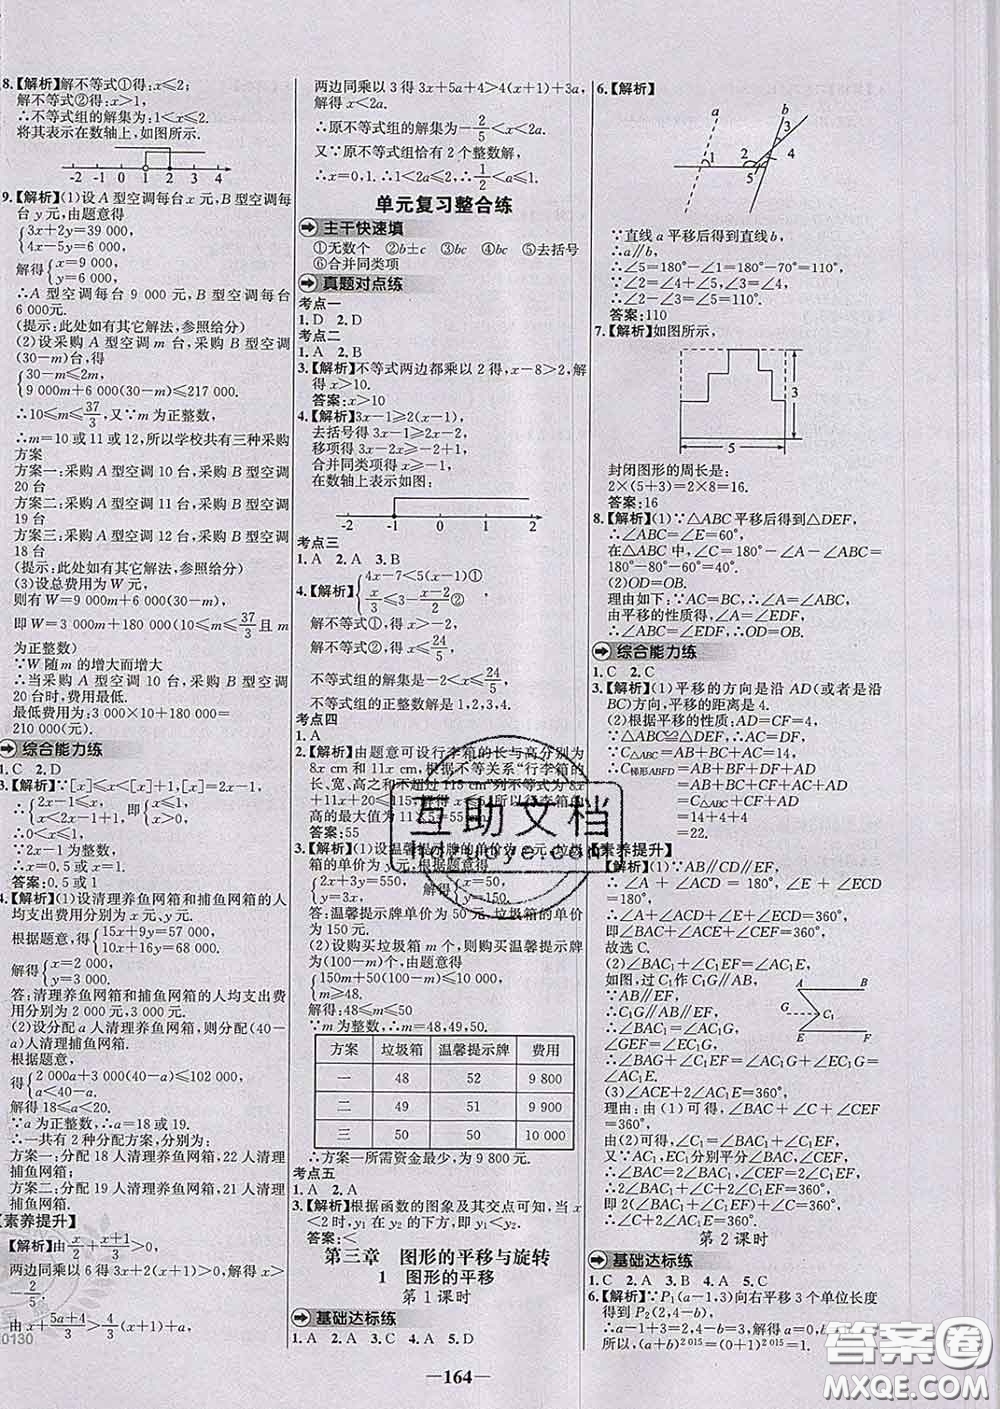 8.【解析】解不等式①得:x≤2;
解不等式②得:x>1,
∴不等式组的解集为:1<x≤2.
将其表示在数轴上,如图所示.
-2 -1 0 1 2 3 4
9.【解析】(1)设 A 型空调每台 x 元,B 型空调每
台 y 元,由题意得
{3x+2y=39 000,
4x-5y=6 000,
解得{x=9 000,
y=6 000.
∴A 型空调每台 9 000 元,B 型空调每台
6 000 元.
(提示:此处如有其它解法,参照给分)
(2)设采购 A 型空调 m 台,采购 B 型空调
(30-m)台,得
{30-m≤2m,
9 000m+6 000(30-m)≤217 000,
∴10≤m≤37/3,又∵m 为正整数,
∴m=10 或 11 或 12,所以学校共有三种采购
方案
方案一:采购 A 型空调 10 台,采购 B 型空调
20 台
方案二:采购 A 型空调 11 台,采购 B 型空调
19 台
方案三:采购 A 型空调 12 台,采购 B 型空调
18 台
(提示:此处如有其它解法,参照给分)
(3)设总费用为 W 元,
则有 W=9 000m+6 000(30-m),
即 W=3 000m+180 000(10≤m≤37/3且 m
为正整数)
∵W 随 m 的增大而增大
∴当采购 A 型空调 10 台,采购 B 型空调
20 台时,费用最低.
最低费用为:3 000×10+180 000=
210 000(元).
综合能力练
1.C 2.D
3.【解析】∵[x]≤x<[x]+1,[x]=2x-1,
∴{2x-1≤x,
x<2x-1+1,
∴0<x≤1,
∵2x-1 为整数,
∴x=0.5 或 x=1.
答案:0.5 或 1
4.【解析】(1)设清理养鱼网箱和捕鱼网箱的人
均支出费用分别为 x 元,y 元.
根据题意,得{15x+9y=57 000,
10x+16y=68 000.
解得{x=2 000,
y=3 000.
答:清理养鱼网箱和捕鱼网箱的人均支出费
用分别为 2 000 元,3 000 元.
(2)设分配 a 人清理养鱼网箱,则分配(40-
a)人清理捕鱼网箱.
根据题意,
得{2 000a+3 000(40-a)≤102 000,
a<40-a.
解得 18≤a<20.
∵a 为正整数,∴a=18 或 19.
∴一共有 2 种分配方案,分别为:
方案一:分配 18 人清理养鱼网箱,22 人清理
捕鱼网箱;
方案二:分配 19 人清理养鱼网箱,21 人清理
捕鱼网箱.
【素养提升】
【解析】由x/2+(x+1)/3>0,
两边同乘以 6 得 3x+2(x+1)>0,解得 x>
-2/5,
由 x+(5a+4)/3>4/3(x+1)+a,
0130
两边同乘以 3 得 3x+5a+4>4(x+1)+3a,
解得 x<2a.
∴原不等式组的解集为-2/5<x<2a.
又∵原不等式组恰有 2 个整数解,
∴x=0,1.∴1<2a≤2.∴1/2<a≤1.
单元复习整合练
主干快速填
①无数个 ②b±c ③bc ④bc ⑤去括号
⑥合并同类项
真题对点练
考点一
1.D 2.D
考点二
1.A 2.B
3.【解析】不等式两边都乘以 2 得,x-8>2,解
得 x>10.
答案:x>10
4.【解析】3x-1≥2(x-1),
去括号得 3x-1≥2x-2,
移项得 3x-2x≥-2+1,
合并同类项得 x≥-1,
在数轴上表示如图:
-2 -1 0 1 2
考点三
1.A 2.A 3.B
4.【解析】{4x-7<5(x-1)①
x/3≤3-(x-2)/2②,
解不等式①得:x>-2,
解不等式②得:x≤24/5,
不等式组的解集是-2<x≤24/5,
不等式的正整数解是 1,2,3,4.
考点四
1.A
2.【解析】由题意可设行李箱的长与高分别为
8x cm 和 11x cm,根据不等关系“行李箱的
长、宽、高之和不超过 115 cm”列不等式为 8x
+11x+20≤115,解得 x≤5.所以行李箱的高
的最大值为 11×5=55(cm).
答案:55
3.【解析】(1)设温馨提示牌的单价为 x 元,垃圾
箱的单价为 y 元,根据题意得
{2x+3y=550,
y=3x,解得{x=50,
y=150.
答:温馨提示牌单价为 50 元,垃圾箱单价
为 150 元.
(2)设购买垃圾箱 m 个,则购买温馨提示牌
(100-m)个,由题意得
{150m+50(100-m)≤10 000,
m≥48.
解得:48≤m≤50
∵m 为整数,∴m=48,49,50.
方案 垃圾箱 温馨提示牌 费用
一 48 52 9 800
二 49 51 9 900
三 50 50 10 000
∴方案一所需资金最少,为 9 800 元.
考点五
1.A 2.A
3.【解析】根据函数的图象及其交点可知,当 x
<2 时,y₁ 在 y₂ 的下方,即 y₁<y₂.
答案:<
第三章 图形的平移与旋转
1 图形的平移
第 1 课时
基础达标练
1.A 2.A 3.C 4.A 5.D
6.【解析】
a b 1 2 3 4 5
∵直线 a 平移后得到直线 b,
∴a∥b,
∴∠5=180°-∠1=180°-70°=110°,
∵∠2=∠4+∠5,∠3=∠4,
∴∠2-∠3=∠5=110°.
答案:110
7.【解析】如图所示,
3
5
封闭图形的周长是:
2×(5+3)=2×8=16.
答案:16
8.【解析】(1)∵△ABC 平移后得到△DEF,
∴∠ABC=∠E=60°,
在△ABC 中,∠C=180°-∠A-∠ABC=
180°-80°-60°=40°.
(2)OD=OB.
理由如下:∵AC=BC,∴∠A=∠ABC,
由平移的性质得,∠A=∠EDF,
∴∠ABC=∠EDF,∴OD=OB.
综合能力练
1.C 2.C
3.【解析】(1)平移的方向是沿 AD(或者是沿
BC)方向,平移的距离是 4.
(2)根据平移的性质:AD=CF=4,
∵△ABC≌△DEF,∴AC=DF,
∵C△ABC=AB+BC+AC=14,
∴C梯形ABFD=AB+BF+DF+AD
=AB+BC+CF+DF+AD
=C△ABC+AD+CF
=14+4+4
=22.
【素养提升】
【解析】(1)∵AB∥CD∥EF,
∴∠A+∠ACD=180°,∠DCE+∠E=180°,
∴∠A+∠ACD+∠DCE+∠E=360°,
即∠A+∠ACE+∠E=360°,
故选 C.
(2)∠BAC₁+∠C₁EF=∠AC₁E,
如图,过 C₁ 作 C₁G∥AB,
∵AB∥EF,
∴C₁G∥AB∥EF,
∴∠BAC₁=∠AC₁G,
∠GEF=∠EC₁G,
∴∠BAC₁+∠C₁EF=∠AC₁G+∠EC₁G,
即∠BAC₁+∠C₁EF=∠AC₁E.
A B C₁ G E F
(3)∠ACE+2∠AC₁E=360°,
理由:由(1)可得,∠BAC+∠C+∠CEF
=360°,
由(2)可知,∠C₁=∠BAC₁+∠C₁EF,
又∵AC₁,EC₁分别平分∠BAC,∠CEF,
∴∠BAC=2∠BAC₁,∠CEF=2∠C₁EF,
∴2∠BAC₁+∠C+2∠C₁EF=360°,
即 2(∠BAC₁+∠C₁EF)+∠C=360°,
∴2∠AC₁E+∠C=360°.
第 2 课时
基础达标练
1.C 2.A 3.D 4.A 5.A
6.【解析】∵P₁(a-1,3)向右平移 3 个单位长度
得到 P₂(2,4-b),
∴a-1+3=2,4-b=3,解得 a=0,b=1,
所以,(a+b)²⁰¹⁵=(0+1)²⁰¹⁵=1.
互助文档
hdzuoye.com
—164—
答案圈
MXQE.COM